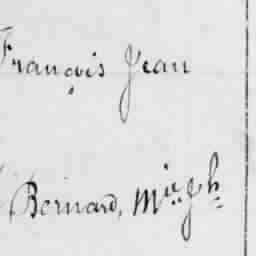 François Jean
Bernard,